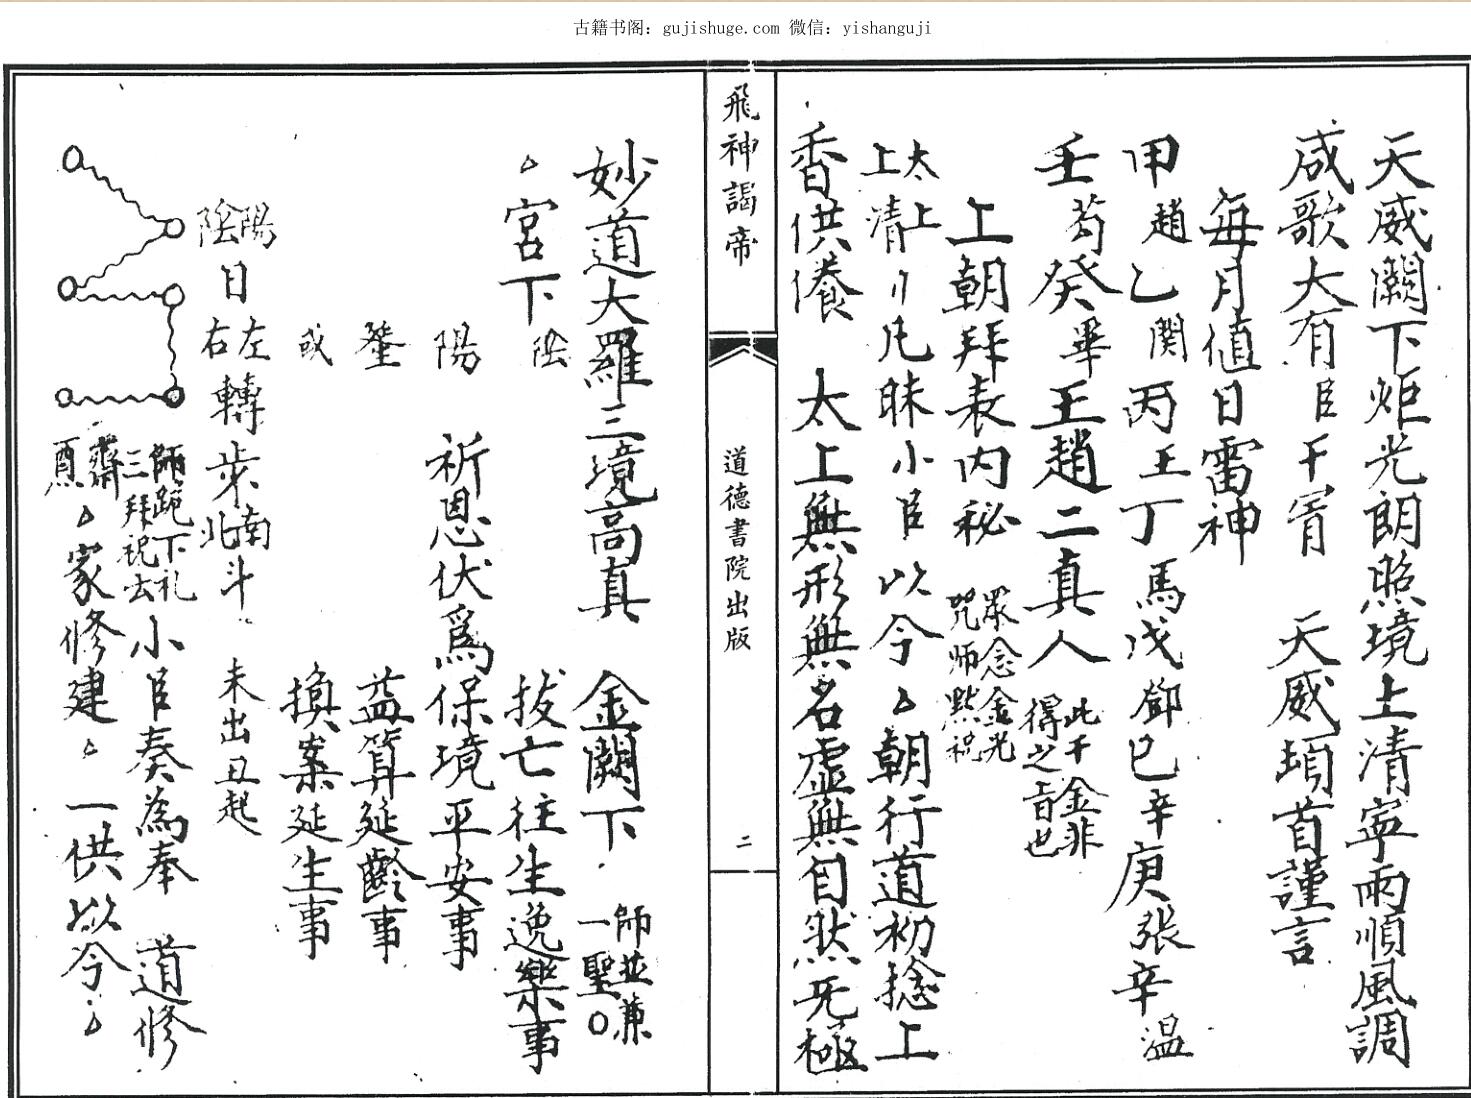 古籍书阁：gujishuge.com 微信：yishanguji
天威闕下炬光朗照境上清寧雨順風調
咸歌大有臣干冐 天威頓首謹言
每月值日雷神
甲趙乙関丙王丁馬戊鄧巳辛庚張辛温
壬苟癸畢王趙二真人 此千金非
得之旨也
上朝拜表内秘 眾念金光
咒師默祝
太上
上清
凡昧小臣 以今 朝行道初捻上
香供養 太上無形無名虛無自然无極
飛神謁帝
道德書院出版
二
妙道大羅三境高真 金闕下 師並兼
一聖〇
宮下 陰 拔亡往生逸樂事
陽 祈恩伏爲保境平安事
益算延齡事
或 換案延生事
陽
陰
日
左
右
轉步
南
北
斗 未出丑起
師跪下礼
三拜祝去
小臣奏為奉 道修
齋
家修建 一供以今